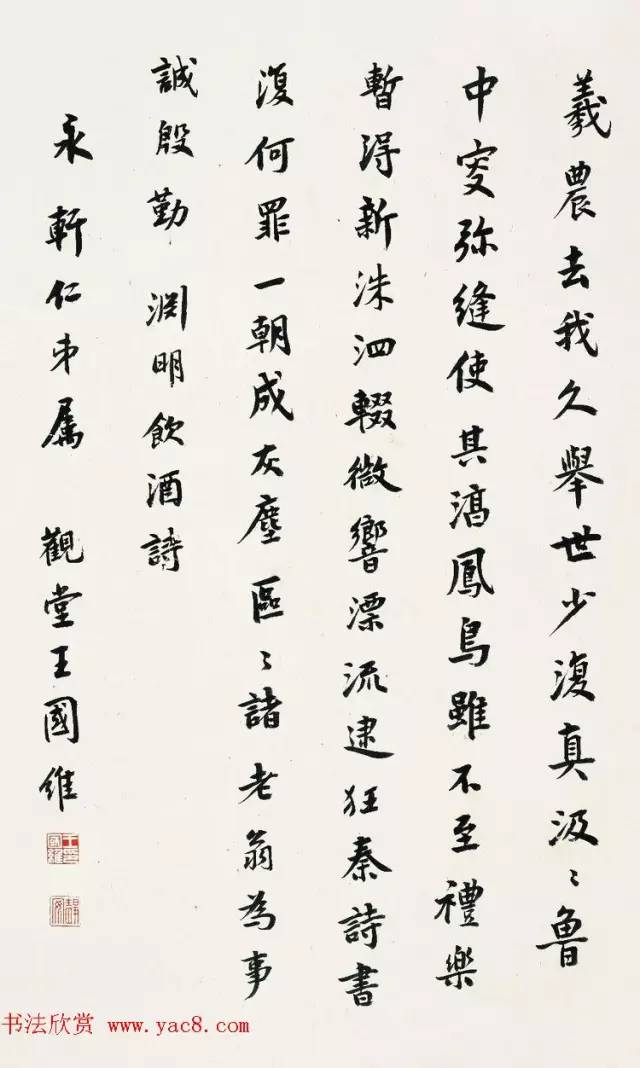 羲農去我久舉世少復真汲〻魯
中叟弥縫使其淳鳳鳥雖不至禮樂
暫得新洙泗輟微響漂流逮狂秦詩書
復何罪一朝成灰塵區〻諸老翁為事
誠殷勤 淵明飲酒詩
永軒仁弟属 觀堂王國維
书法欣赏 www.yac8.com